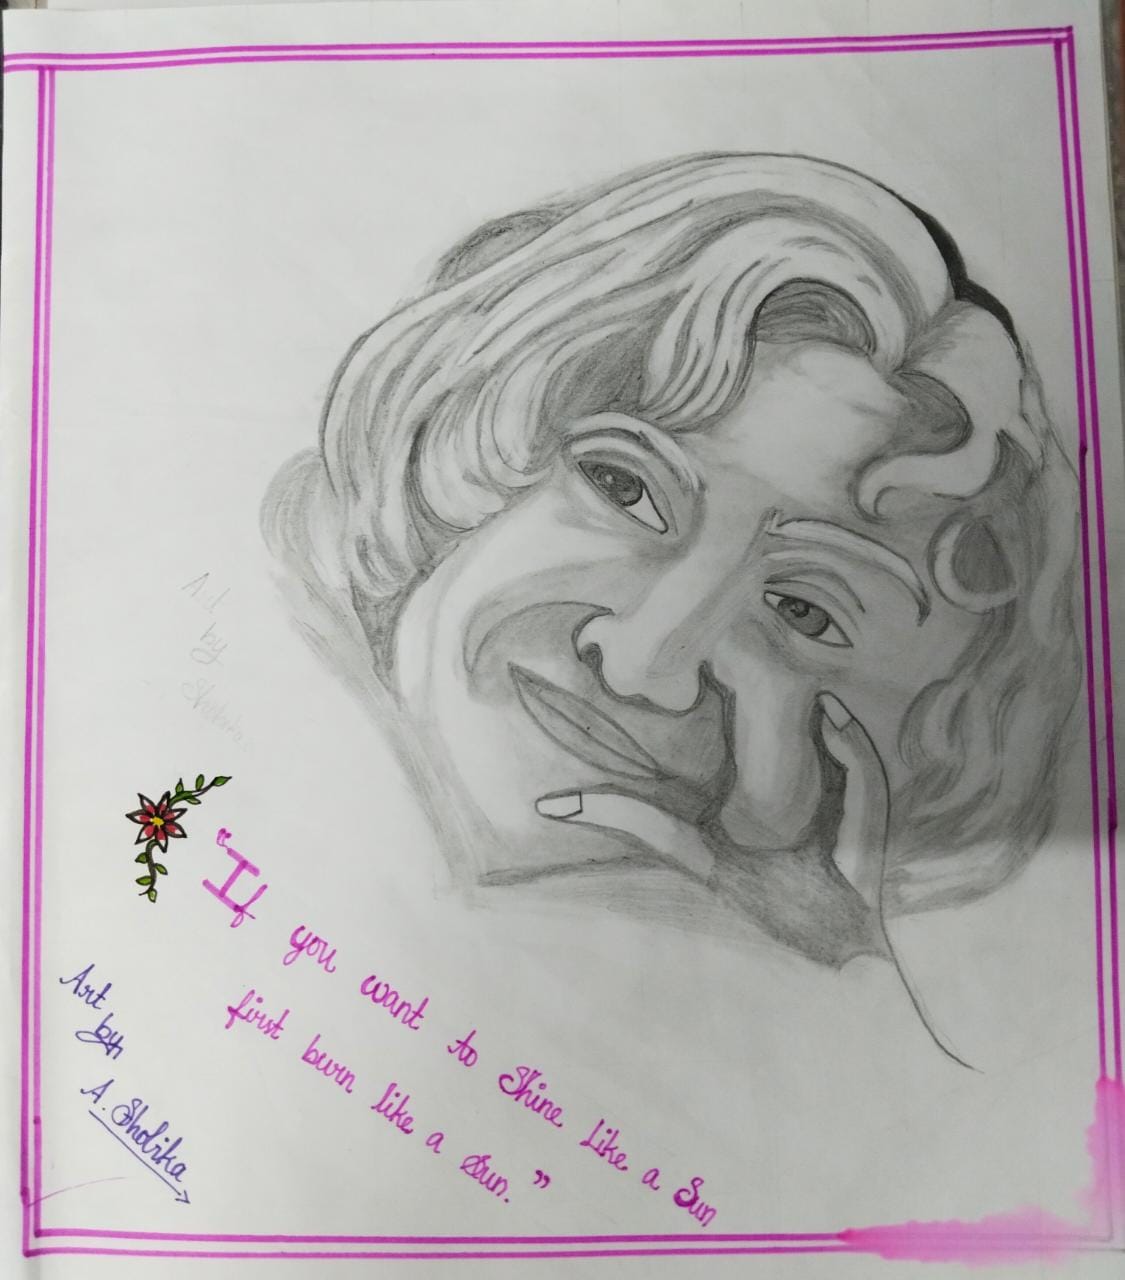 Art
by
“If you want to Shine Like a Sun
first burn like a Sun.”
Art
by
A. Sholika